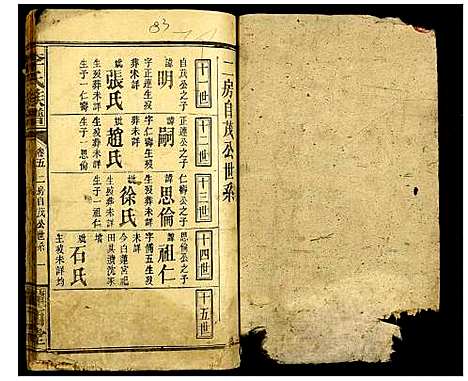 83
二房自茂公世系
十一世
十二世
十三世
十四世
十五世
自茂公之子
諱明
字正連生歿
葬未詳
媲張氏
生歿葬未詳
生子一仁壽
正連公之子
諱嗣
字仁壽生歿
葬未詳
媲趙氏
生歿葬未詳
生子一思倫
仁壽公之子
諱思倫
生歿葬未詳
媲徐氏
生歿葬未詳
生子一祖仁
思倫公之子
諱祖仁
字儒五生歿
未詳
媲石氏
生歿未詳均
氏族譜
卷五
二房自茂公世系